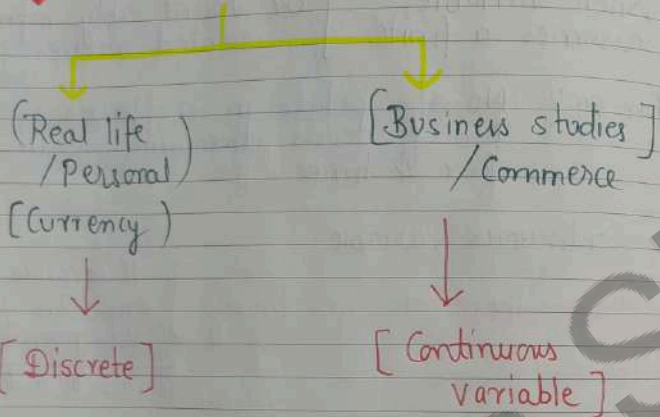 (Real life
/Personal)
[Currency)
[Discrete]
[Business studies]
/Commerce
[Continuous
variable]